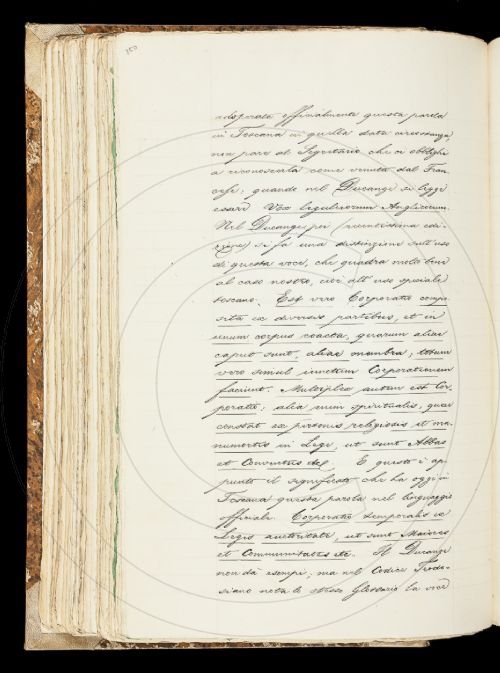 350
adoperata officialmente questa parola
in Toscana in quella data circostanza,
non pare al Segretario che ci obblighi
a riconoscerla come venuta dal Fran-
cese; quando nel Ducange si legge
essere Vox legulieorum Anglicorum.
Nel Ducange per (recentissima edi-
zione) si fa una distinzione sull'uso
di questa voce, che quadra molto bene
al caso nostro, cioè all'uso speciale
toscano. Est vero Corporatio compo-
sita ex diversis partibus, et in
unum corpus coacta, quarum aliae
caput sunt, aliae membra; totum
vero simul iunctum Corporationem
faciunt. Multiplex autem est Cor-
poratio; alia enim spiritualis, quae
constat ex personis religiosis et
numertis in Lege, ut sunt Abbas
et Conventus etc. E questo è ap-
punto il significato che ha oggi in
Toscana questa parola nel linguaggio
officiale. Corporatio temporalis ex
Legis auctoritate, ut sunt Maiores
et Communitates etc. Il Ducange
non dà esempi; ma nel Codice Teodo-
siano nota lo stesso Glossario la voce